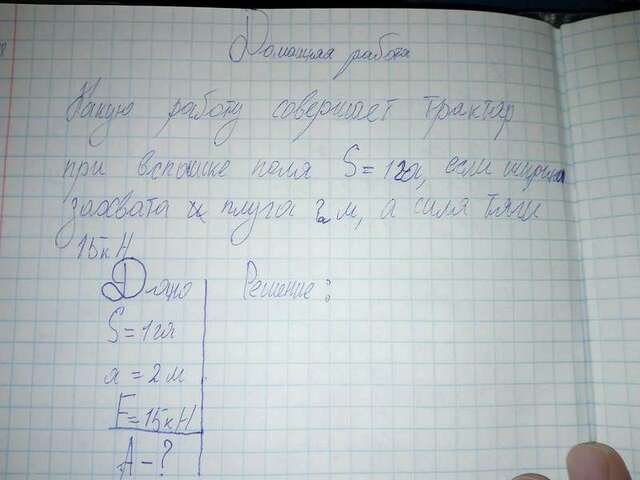 Домашняя работа
Какую работу совершает трактар
при вспашке поля S=1га, если ширина
захвата плуга 2 м, а сила тяги
15кН
Дано Решение:
S=1га
a=2м
F=15кН
A-?